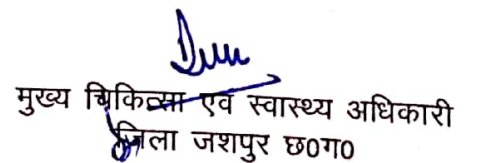 मुख्य चिकित्सा एवं स्वास्थ्य अधिकारी
जिला जशपुर छ0ग0